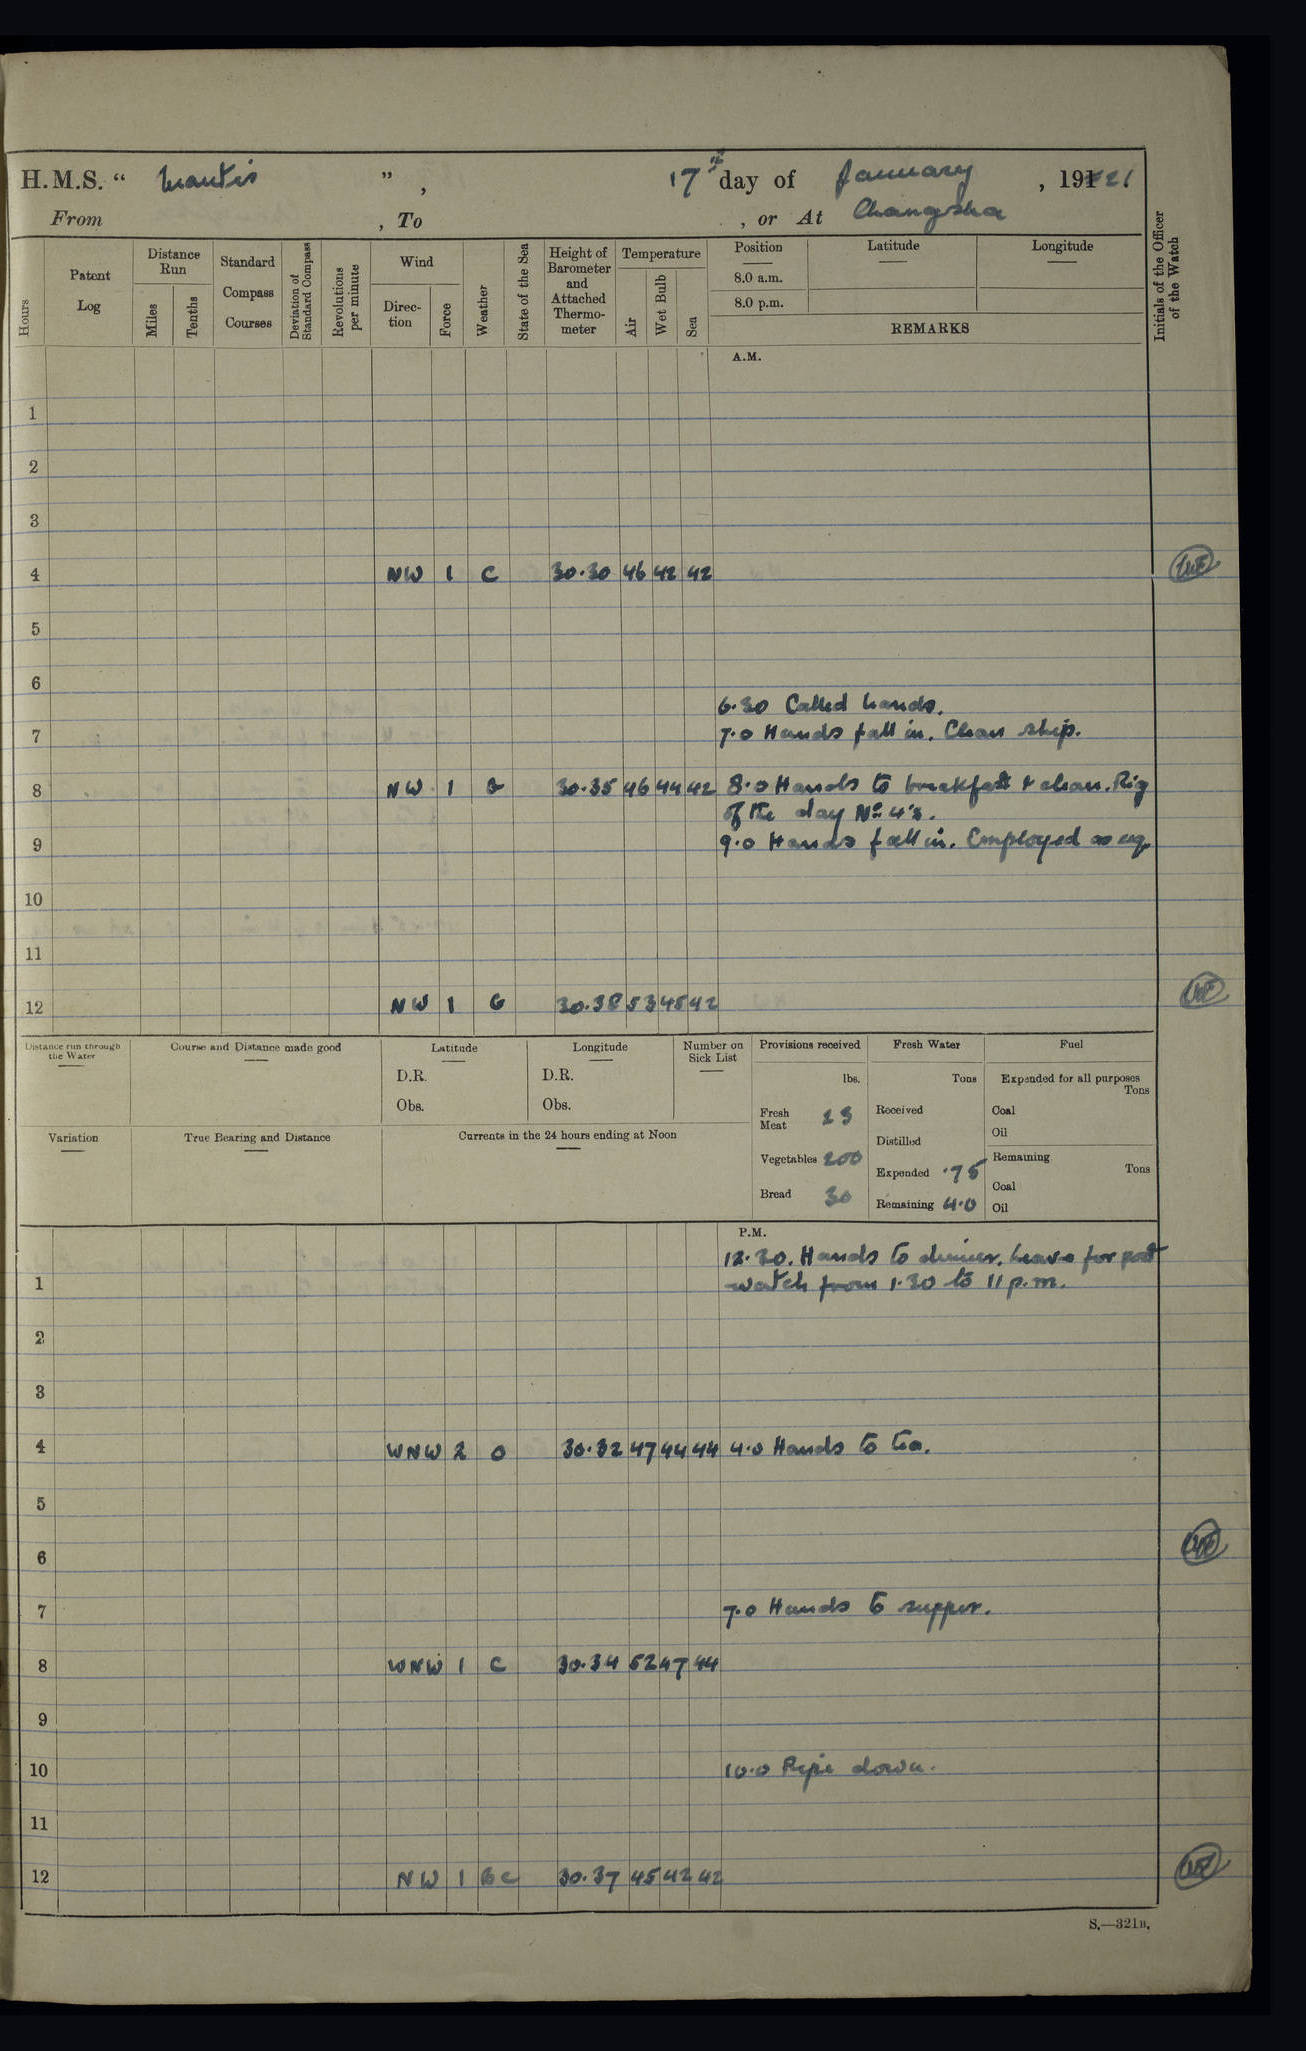 H.M.S. “ Mantis ” , 17th day of January , 1921
From , To , or At Changsha
Hours Patent Log Distance Run Miles Tenths Standard Compass Courses Deviation of Standard Compass Revolutions per minute Wind Direc-tion Force Weather State of the Sea Height of Barometer and Attached Thermo-meter Temperature Air Wet Bulb Sea Position 8.0 a.m. 8.0 p.m. Latitude Longitude REMARKS Initials of the Officer of the Watch
A.M.
1
2
3
4 NW 1 C 30.30 46 42 42
5
6
6.30 Called hands.
7 7.0 Hands fall in. Clean ship.
8 NW 1 30.35 46 44 42 8.0 Hands to breakfast & clean. Rig
of the day No 4's.
9 9.0 Hands fall in. Employed as req
10
11
12 NW 1 G 30.38 53 45 42
Distance run through the Water Course and Distance made good Latitude Longitude Number on Sick List Provisions received Fresh Water Fuel
D.R. D.R. lbs. Tons Expended for all purposes Tons
Obs. Obs. Fresh Meat 23 Received Coal
Oil
Variation True Bearing and Distance Currents in the 24 hours ending at Noon Distilled
Vegetables 200 Expended .75 Remaining Tons
Bread 30 Remaining 4.0 Coal
Oil
P.M.
12.30. Hands to dinner. Leave for port
1 watch from 1.30 to 11 p.m.
2
3
4 WNW 2 O 30.32 47 44 44 4.0 Hands to tea.
5
6
7 7.0 Hands to supper.
8 WNW 1 C 30.34 52 47 44
9
10 10.0 Pipe down.
11
12 NW 1 BC 30.37 45 42 42
S.—321B.